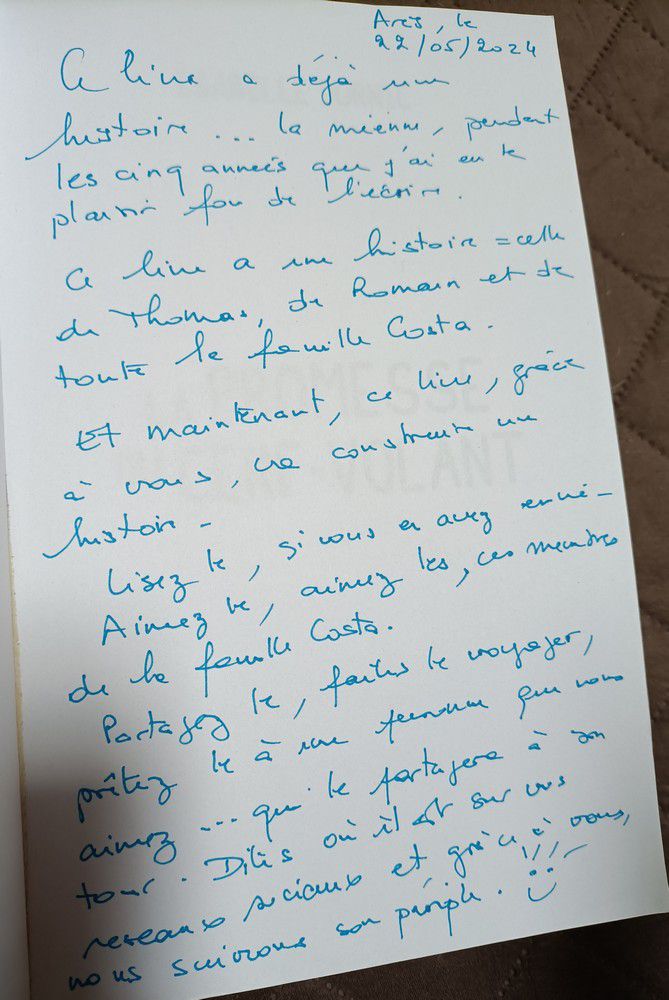 Arès, le
22/05/2024
Ce livre a déjà une
histoire ... la mienne, pendant
les cinq années que j'ai eu le
plaisir fou de l'écrire.
Ce livre a une histoire = celle
de Thomas, de Romain et de
toute la famille Costa.
Et maintenant, ce livre, grâce
à vous, va construire une
histoire -
Lisez le, si vous en avez envie -
Aimez le, aimez les, ces membres
de la famille Costa.
Partagez le, faites le voyager,
prêtez le à une personne que vous
aimez ... qui le partagera à son
tour. Dites où il est sur vos
reseaux sociaux et grâce à vous,
nous suivrons son périple.
PROMESSE
CERF-VOLANT